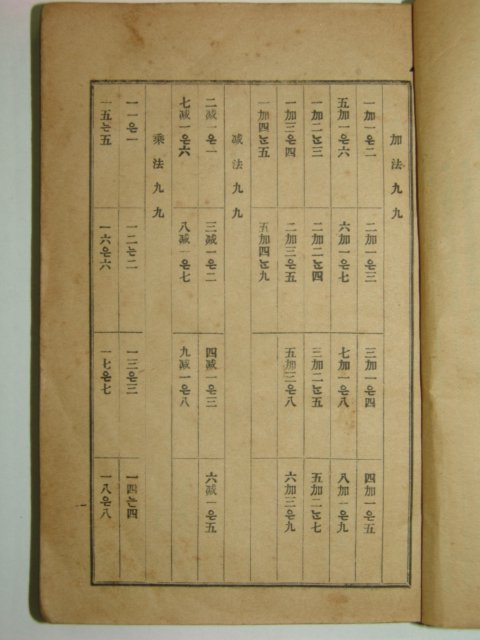 加法九九
一加一은二 二加一은三 三加一은四 四加一은五
五加一은六 六加一은七 七加一은八 八加一은九
一加二는三 二加二는四 三加二는五 五加二는七
一加三은四 二加三은五 五加三은八 六加三은九
一加四는五 五加四는九
减法九九
二减一은一 三减一은二 四减一은三 六减一은五
七减一은六 八减一은七 九减一은八
乘法九九
一一은一 一二는二 一三은三 一四는四
一五는五 一六은六 一七은七 一八은八